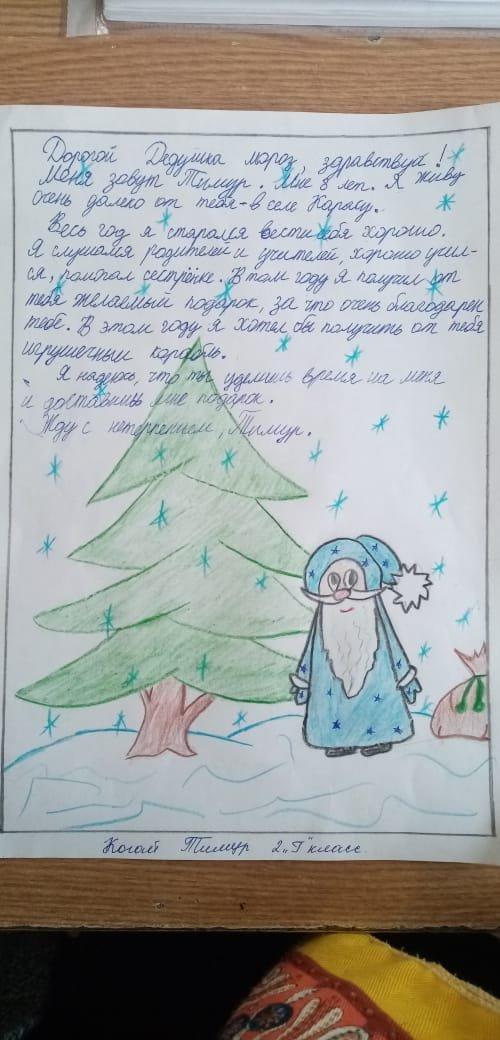 Дорогой Дедушка мороз, здравствуй!
Меня зовут Тимур. Мне 8 лет. Я живу
очень далеко от тебя - в селе Карасу.
Весь год я старался вести себя хорошо.
Я слушался родителей и учителей, хорошо учил-
ся, помогал сестрёнке. В том году я получил от
тебя желаемый подарок, за что очень благодарен
тебе. В этом году я хотел бы получить от тебя
игрушечный корабль.
Я надеюсь, что ты уделишь время на меня
и доставишь мне подарок.
Жду с нетерпением, Тимур.
Когай Тимур 2 „Г" класс.